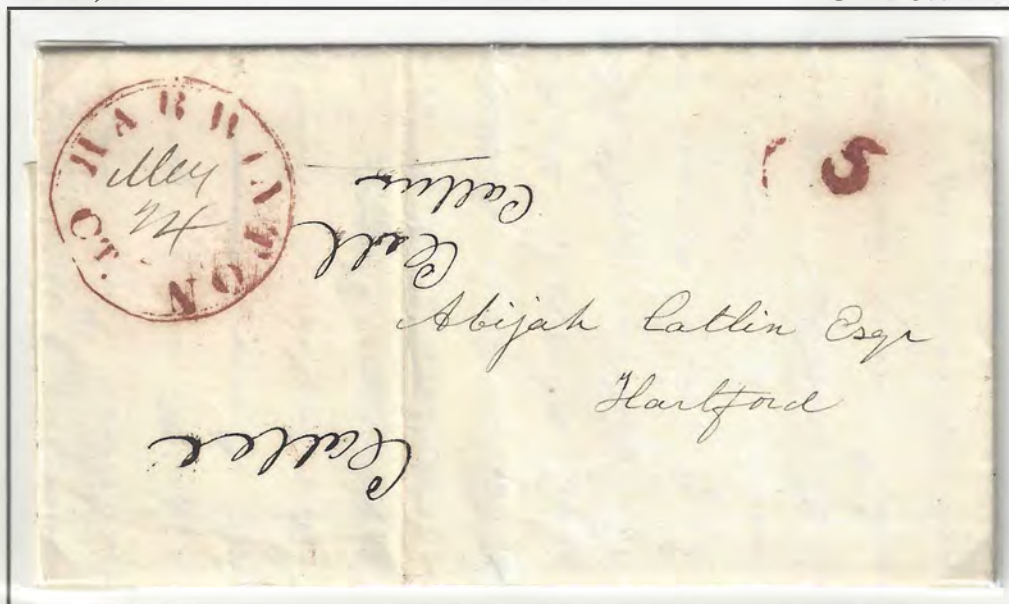 HARWINTON
CT.
May
24
5
Catlin
Abijah Catlin Esqr
Hartford